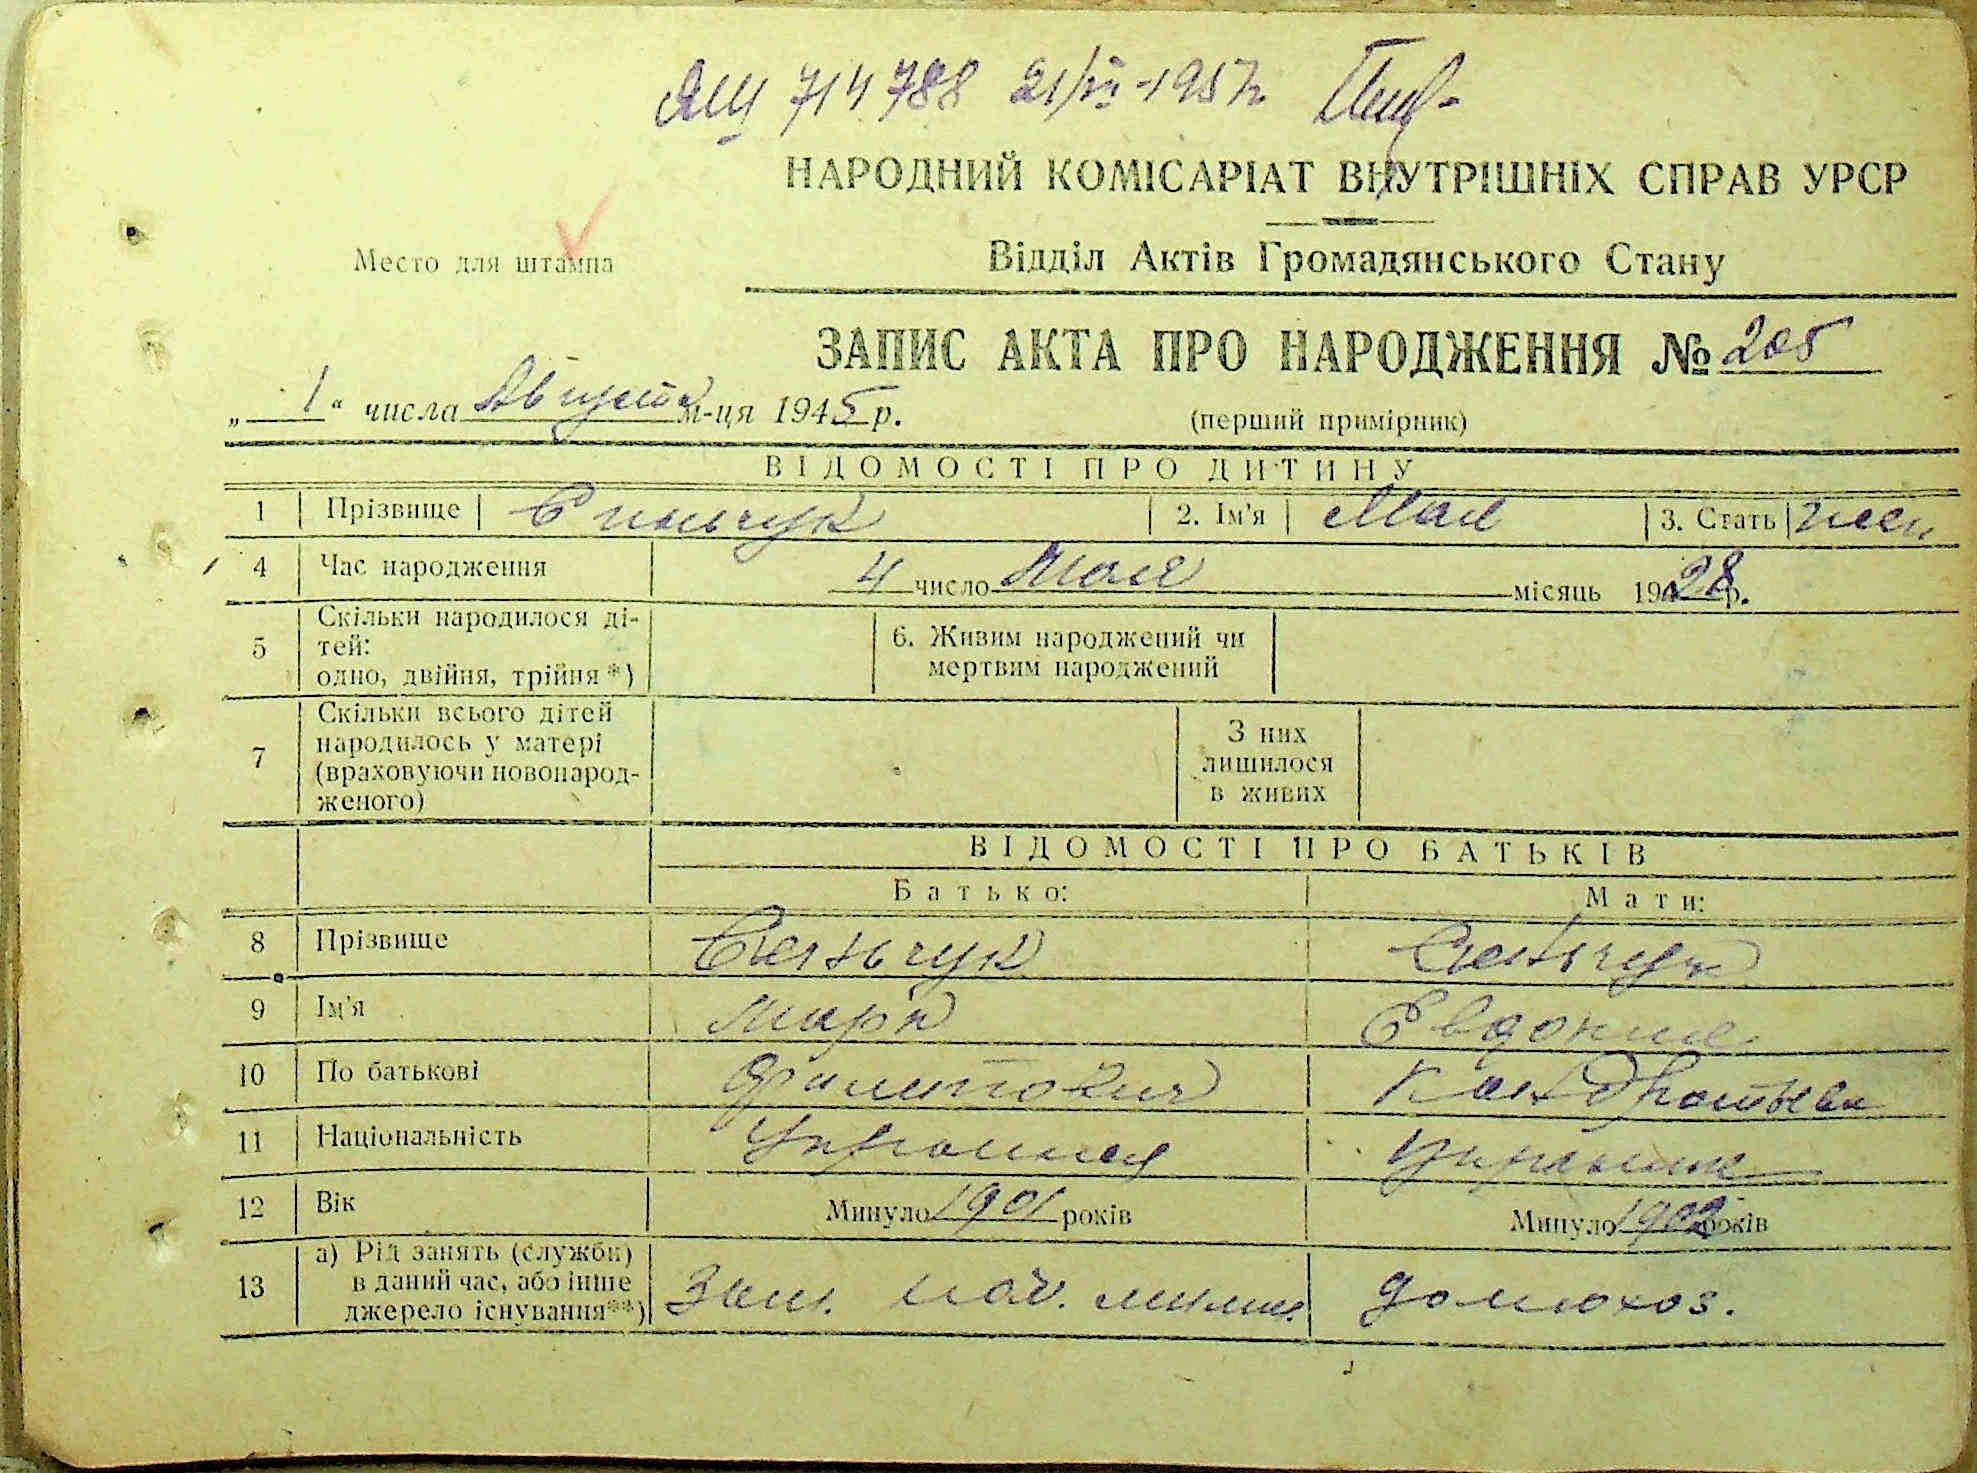 ЯЩ 714788 21/VII-1957г.
НАРОДНИЙ КОМІСАРІАТ ВНУТРІШНІХ СПРАВ УРСР
Место для штампа
Відділ Актів Громадянського Стану
ЗАПИС АКТА ПРО НАРОДЖЕННЯ № 205
„ 1 “ числа Августа м-ця 1945 р. (перший примірник)
ВІДОМОСТІ ПРО ДИТИНУ
1 Прізвище Сильчук 2. Ім'я Мая 3. Стать жен.
4 Час народження 4 число Мая місяць 1928 р.
5 Скільки народилося ді-
тей:
одно, двійня, трійня *)
6. Живим народжений чи
мертвим народжений
7 Скільки всього дітей
народилось у матері
(враховуючи новонарод-
женого)
З них
лишилося
в живих
ВІДОМОСТІ ПРО БАТЬКІВ
Батько: Мати:
8 Прізвище Сильчук Сильчук
9 Ім'я Марк Евдокия
10 По батькові Филиппович Кондратьевн
11 Національність Украинец Украинка
12 Вік Минуло 1901 років Минуло 1902 років
13 а) Рід занять (служби)
в даний час, або інше
джерело існування**)
Зам. нач. милиц. домохоз.